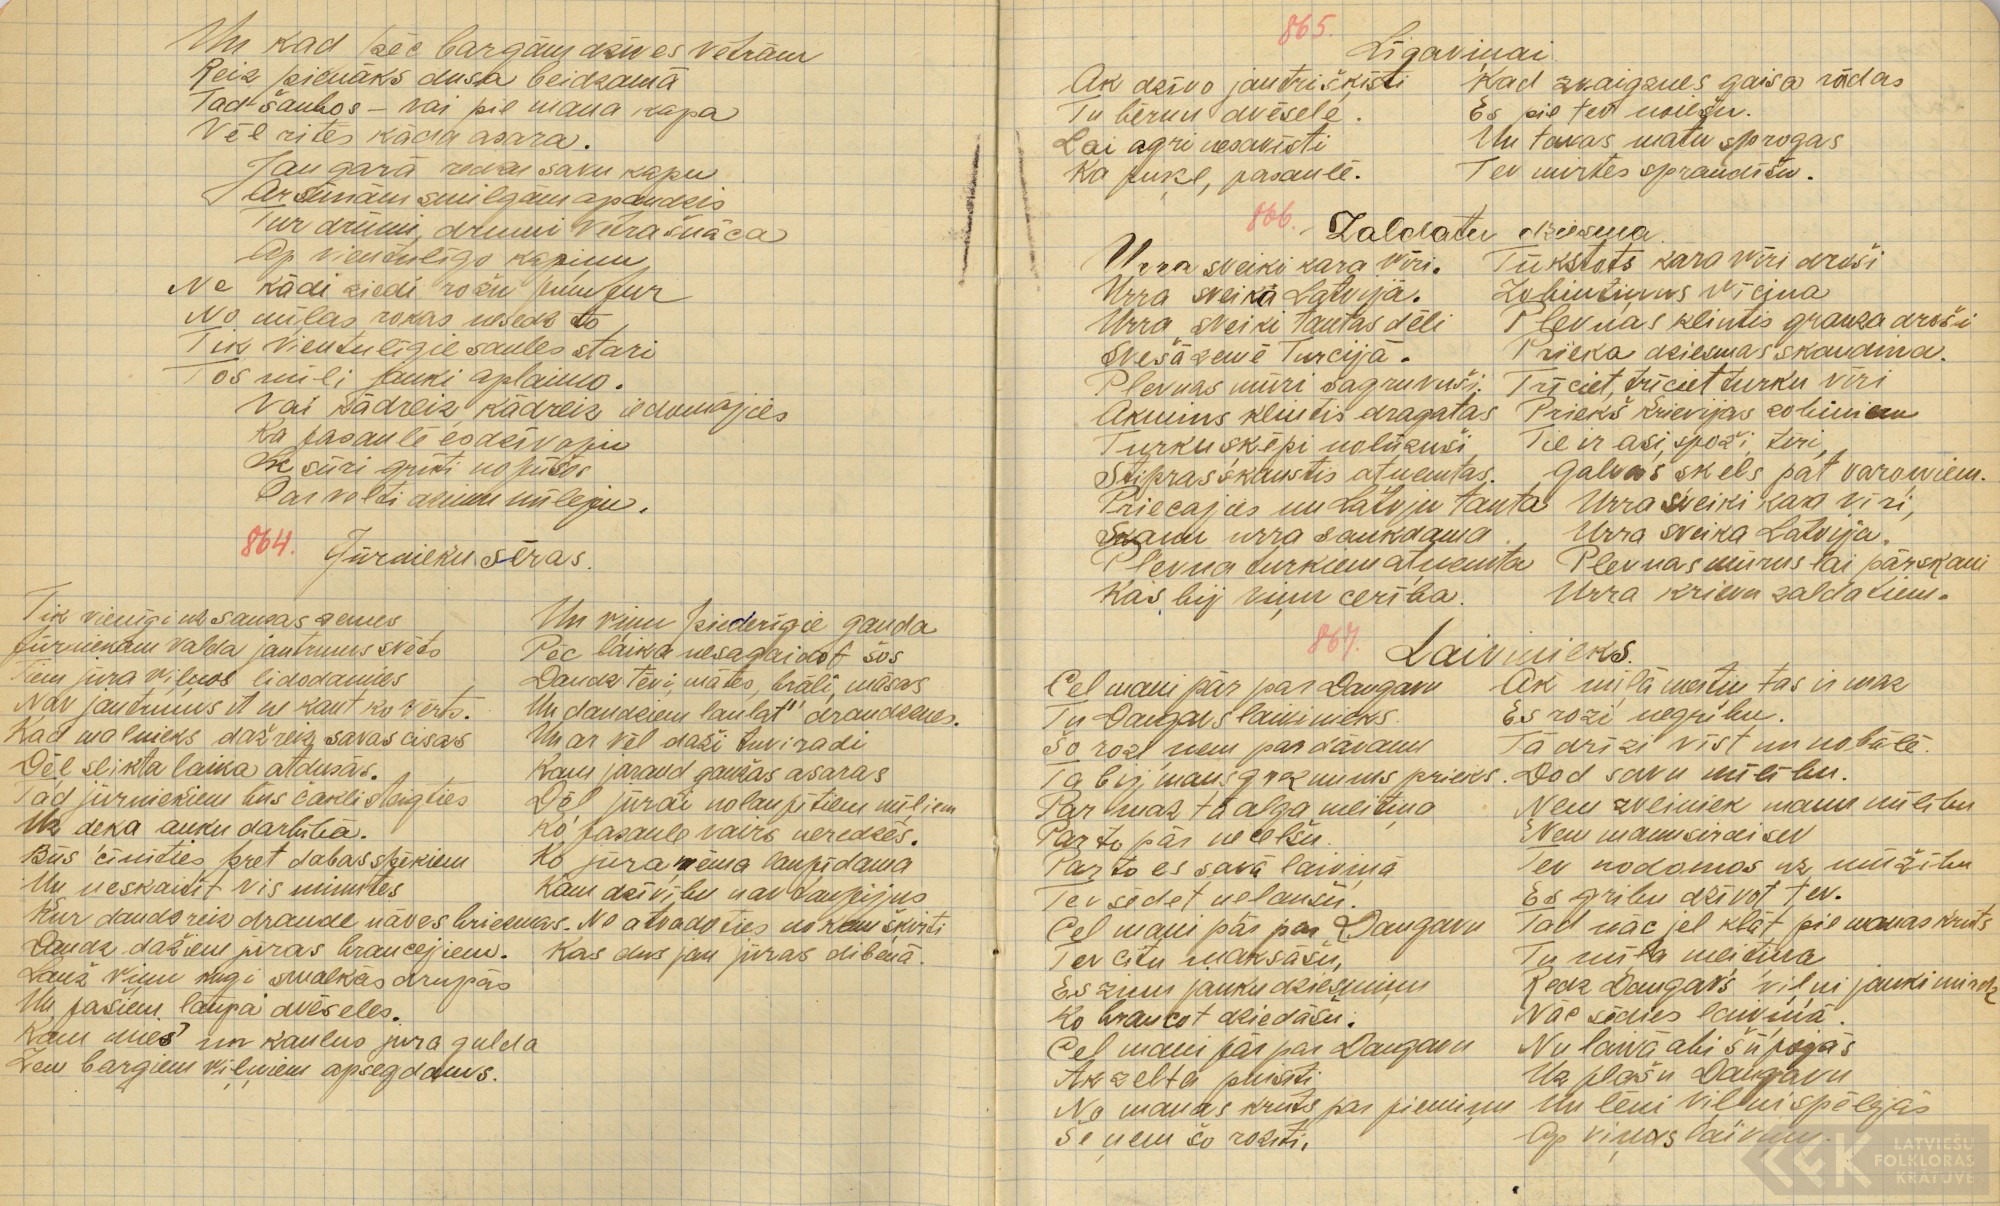 Un kad pēc bargām dzīves vētrām
Reiz pienāks dusa beidzamā
Tad šaubos – vai pie mana kapa
Vēl ritēs kāda asara.
Jau garā redzu savu kapu
Ar sūnām smilgām apaudzis
Tur drūmi, drūmi vētra šņāca
Ap vientulīgo kapiņu
Ne kādi ziedi rožu pumpur
No mīlas rokas nesedz to
Tik vientulīgie saules stari
Tos mīli jauki aplaimo.
Vai kādreiz, kādreiz iedomājies
Ka pasaulē es dzīvoju
Ik sūri grūti nopūšos
Par velti mīlēju.
864.
Jūrnieku sēras.
Tik vienīgi uz sausas zemes
Jūrniekam valda jautrums svēts
Tiem jūra viļņos līdodamies
Nav jautrums it ne kaut ko vērts.
Kad malnieks dažreiz savas cisas
Dēļ slikta laika atdusās.
Tad jūrniekiem būs čakli steigties
Uz deka auku darbībā.
Būs cīnīties pret dabas spēkiem
Un neskaitīt vis minutes
Kur daudzreiz draude nāves briesmas.
Daudz dažiem jūras braucējiem.
Lauž viņu kuģi smalkās drupās
Un pašiem laupa dvēseles.
Kam mies' un kaulus jūra gulda
Zem bargiem viļņiem apsegdams.
Un viņu piederīgie gauda
Pēc laika nesagaidot šos
Daudz tēvi, mātes, brāļi, māsas
Un daudziem laulāt' draudzenes.
Un ar vēl daži tuvi radi
Kam jāraud gaužas asaras
Dēļ jūrai nolaupītiem mīļiem
Ko pasaule vairs neredzēs.
Ko jūra ņēma laupīdama
Kam dzīvību nav laupījus
No atvadoties no kam šķirti
Kas dus jau jūras dibenā.
865.
Līgaviņai.
Ak dzīvo jautri šķīsti
Tu bērnu dvēsele.
Lai agri nesavīsti
Kā puķe, pasaulē.
Kad zvaigznes gaisa rādas
Es pie tev nolīšu.
Un tavas matu sprogas
Tev mirtes spraudīšu.
866.
Zaldātu dziesma.
Urra sveiki kara vīri.
Urra sveika Latvijā.
Urra sveiki tautas dēli
Svešā zemē Turcijā.
Plevnas mūri sagruvuši,
Akmens klintis dragātas
Turku šķēpi nolūzuši
Stipras skanstis atņemtas.
Priecājies nu Latvju tauta
Skaņu urra saukdama.
Plevna turkiem atņemta
Kas bij viņu cerība.
Tūkstots kara vīri droši
Zobentiņus vicina
Plevnas klintis grauza droši
Prieka dziesmas skandina.
Trīciet, trīciet turku vīri
Priekš Krievijas zobiniem
Tie ir asi, spoži, tīri,
galvas skels pat varoņiem.
Urra sveiki kara vīri,
Urra sveika Latvija,
Plevnas mūrus lai pārskani
Urra krievu zaldātiem.
867.
Laivinieks.
Cel mani pār par Daugavu
Tu Daugavs laivinieks.
Šo rozi ņem par dāvanu
Tā bij mans greznums prieks.
Par maz tā alga meitiņa
Par to pār necelšu.
Par to es savā laiviņā
Tev sēdēt nelaušu.
Cel mani pār par Daugavu
Tev citu maksāšu,
Es zinu jauku dziesmiņu
Ko braucot dziedāšu.
Cel mani pār par Daugavu
Ak zelta puisīti
No manas krūts par piemiņu
Še ņem šo rozīti.
Ak mīļā meitiņ tas ir maz
Es rozi negribu.
Tā drīzi vīst un nobālē.
Dod savu mīlību.
Ņem zveiniek manu mīlību
Ņem manu sirdi sev
Tev nodomos uz mūžību
Es gribu dzīvot tev.
Tad nāc jel klāt pie manas krūts
Tu mīļa meitiņa
Redz Daugavs viļņi jauki mirdz
Nāc sēdies laiviņā.
Nu laivā abi šūpojās
Uz plašu Daugavu
Un lēni viļņi spēlējās
Ap viņas laiviņu.
LATVIEŠU
FOLKLORAS
KRĀTUVE